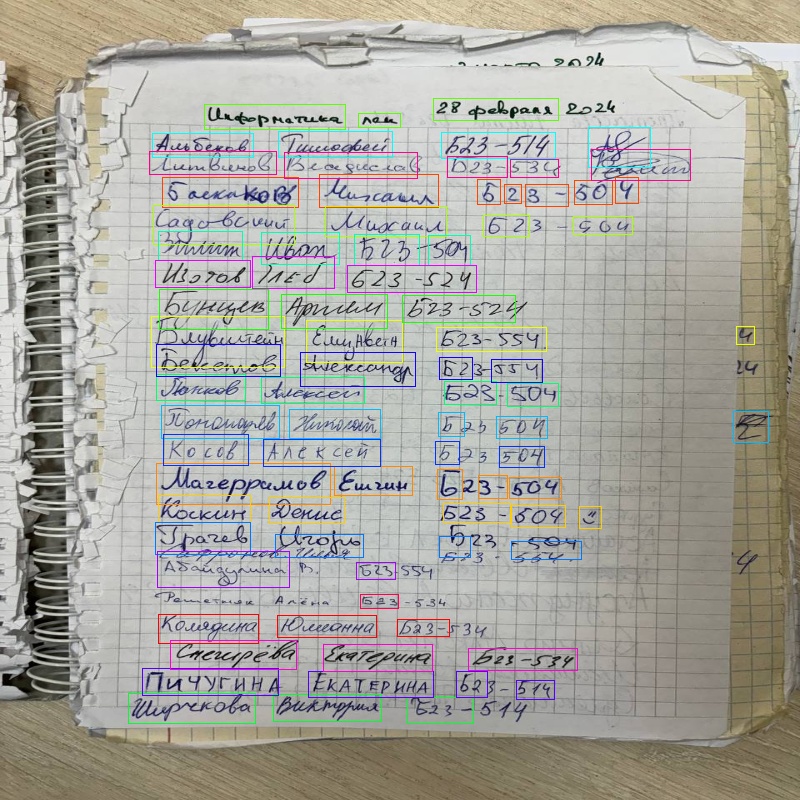 марта 2024
Информатика лаб 28 февраля 2024
Альбеков Тимофей Б23-514
Литвинов Владислав Б23-534
Баскаков Михаил Б23-504
Садовский Михаил Б23-504
Иван Б23-504
Изотов Глеб Б23-524
Бунцев Артем Б23-524
Блувштейн Елизавета Б23-554
Бекетов Александр Б23-554
Панков Алексей Б23-504
Пономарёв Николай Б23 504
Косов Алексей Б23 504
Магеррамов Ельчин Б23-504
Коскин Денис Б23-504
Грачев Игорь Б23-504
Илья Б23-534
Абайдулина В. Б23-554
Решетняк Алёна Б23-534
Комядина Юлианна Б23-534
Снегирёва Екатерина Б23-534
ПИЧУГИНА ЕКАТЕРИНА Б23-514
Ширчкова Виктория Б23-514